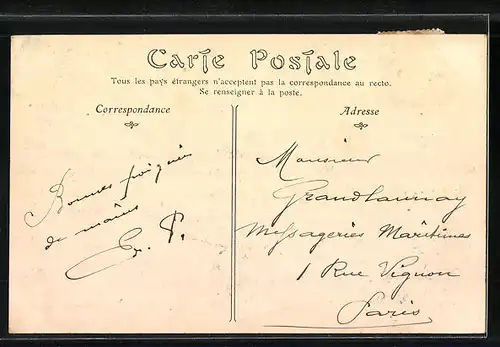 Carte Postale
Tous les pays étrangers n'acceptent pas la correspondance au recto.
Se renseigner à la poste.
Correspondance
Adresse
Bonnes poignées
de mains
Monsieur
Grandlaunay
Messageries Maritimes
1 Rue Vignon
Paris